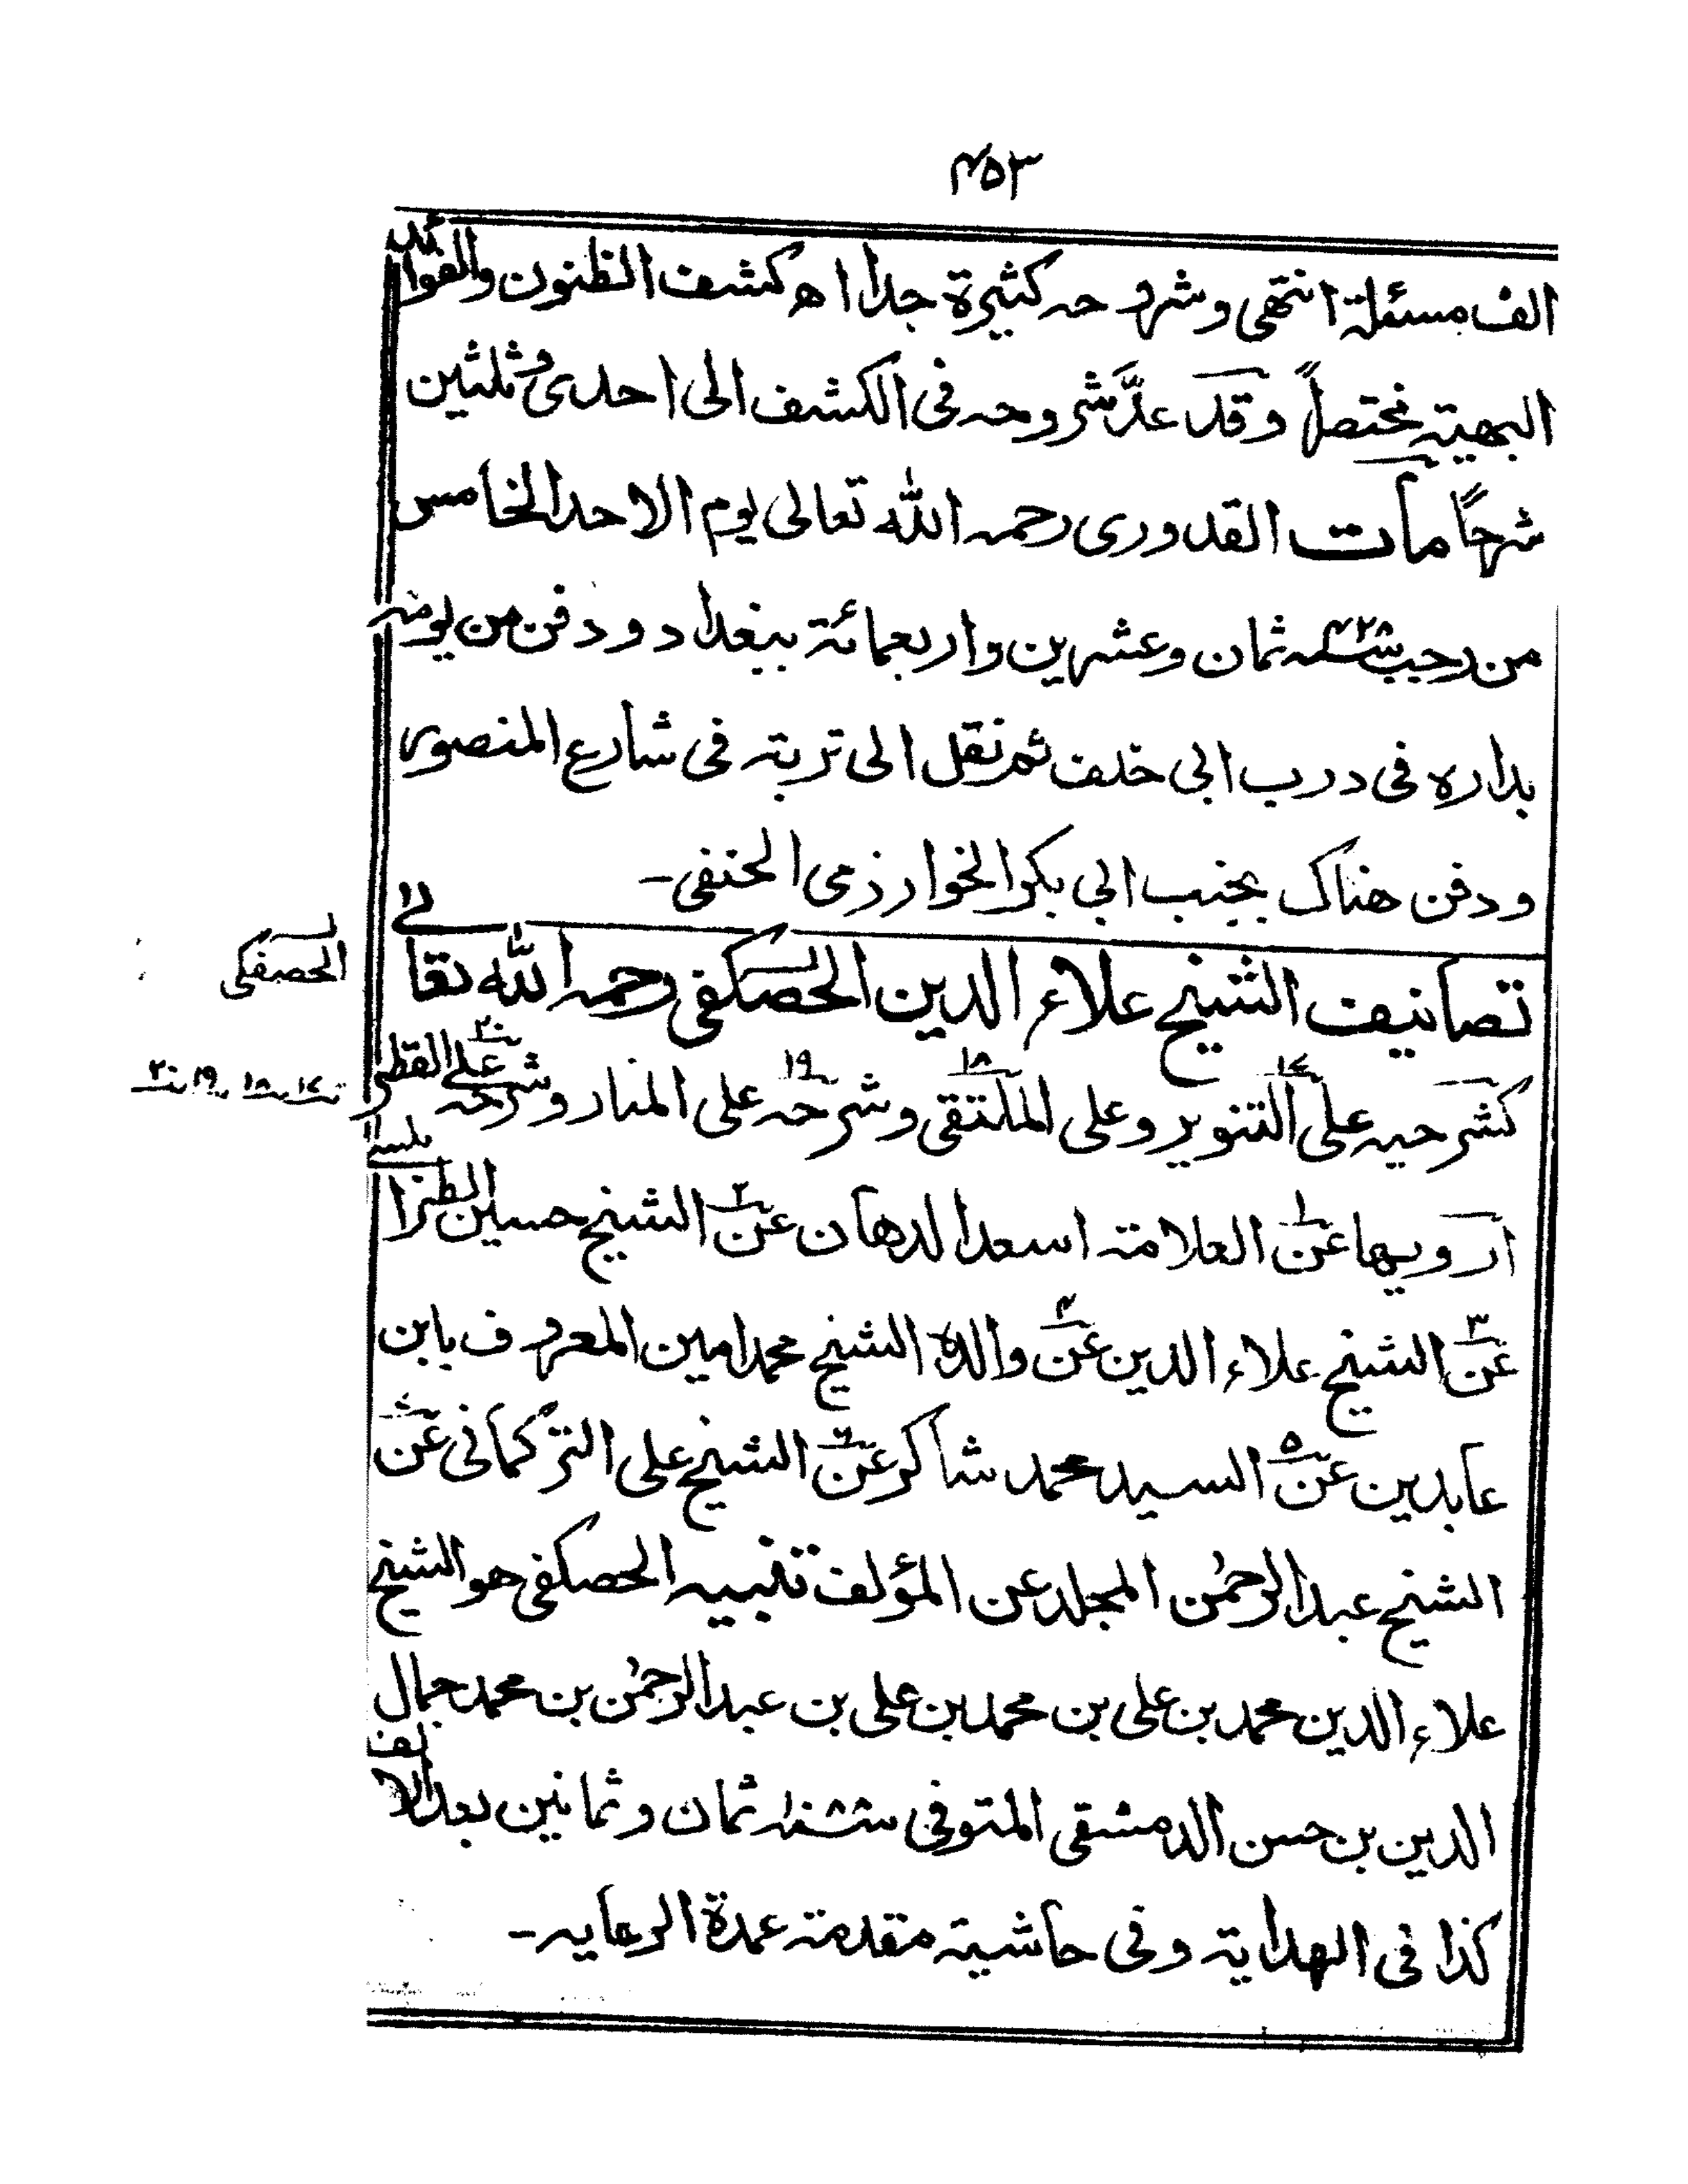 ۴۵۳
الف مسئلة انتهى وشروحه كثيرة جدا اه كشف الظنون والفوائد
البهية مختصراً وقد عدَّ شروحه فى الكشف الى احدى وثلثين
شرحاً مات القدورى رحمه الله تعالى يوم الاحد الخامس
من رجب سنة ۴۲۸ ثمان وعشرين واربعمائة ببغداد ودفن من يومه
بداره فى درب ابى خلف ثم نقل الى تربته فى شارع المنصور
ودفن هناك بجنب ابى بكر الخوارزمى الحنفى۔
تصانيف الشيخ علاء الدين الحصكفى رحمه الله تعالے
الحصفكى
كشرحيه على التنوير وعلى الملتقى وشرحه على المنار وشرحه علے القطر
۱۷ ۱۸ ۱۹ ۲۰
ارويها عن العلامة اسعد الدهان عن الشيخ حسين الطرابلسے
عن الشيخ علاء الدين عن والده الشيخ محمد امين المعروف بابن
عابدين عن السيد محمد شاكر عن الشيخ على التركمانى عن
الشيخ عبد الرحمٰن المجلد عن المؤلف تنبيه الحصكفى هو الشيخ
علاء الدين محمد بن على بن محمد بن على بن عبد الرحمٰن بن محمد جمال
الدين بن حسن الدمشقى المتوفى سنة ثمان وثمانين بعد الالف
كذا فى الهداية وفى حاشية مقدمة عمدة الرعايه۔